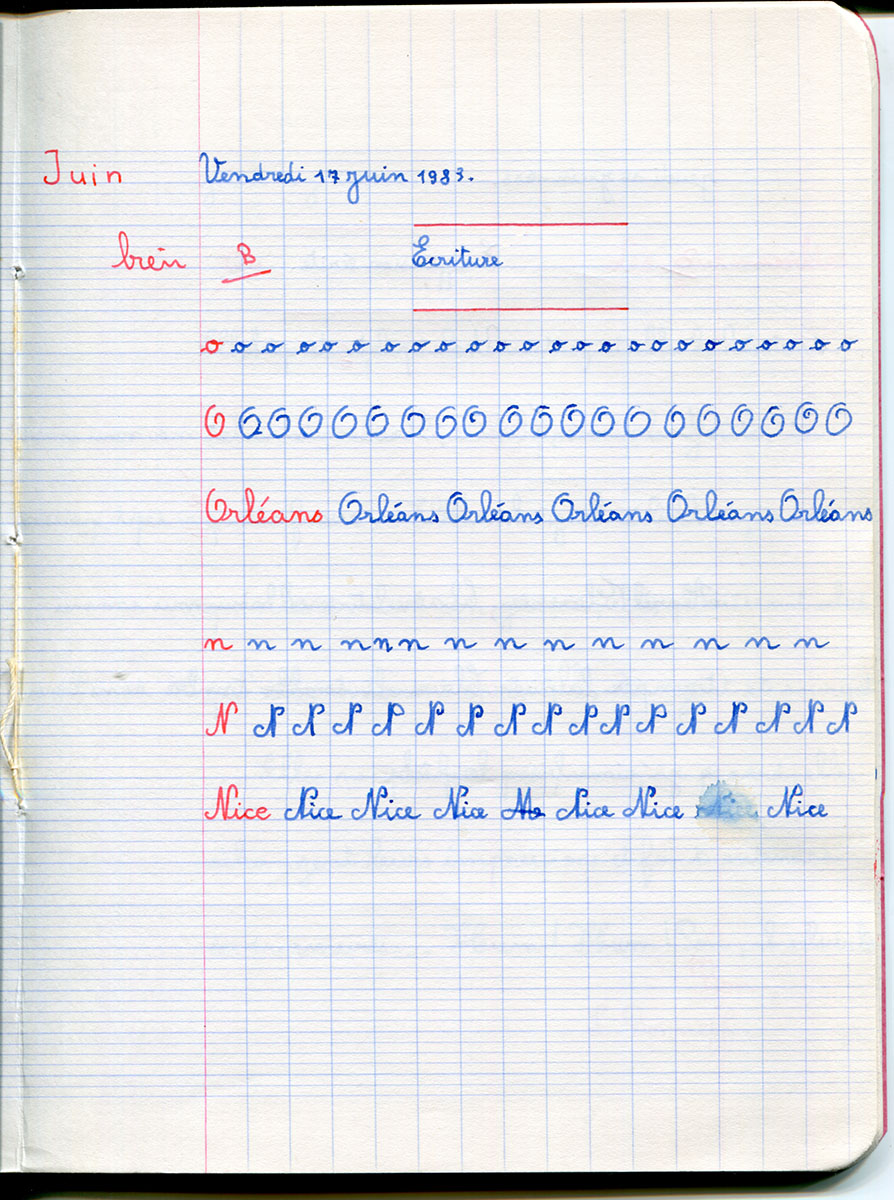 Juin Vendredi 17 juin 1983.
bien B Ecriture
o o o o o o o o o o o o o o o o o o o o o o o o
O O O O O O O O O O O O O O O O O O O O
Orléans Orléans Orléans Orléans Orléans Orléans
n n n n n n n n n n n n n n
N N N N N N N N N N N N N N N N N
Nice Nice Nice Nice Nice Nice Nice